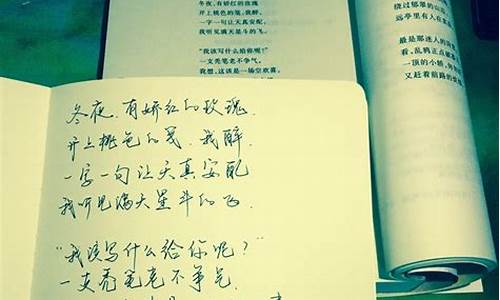 冬夜，有娇红的玫瑰
开上桃色的笺，我醉，
一字一句让天真安配，
我听见满天星斗的飞。
“我该写什么给你呢？”
一支秃笔老不争气。
我想，这该是一场空欢喜。
绕过郁翠的山
远亭里有人在
最是那迷人的
看，乱鸦正点
一顶的小轿，
又赶着前路的
冬夜，有娇红的玫瑰，
开上桃色的笺，我醉，
一字一句让天真安配
我听见满天星斗的飞．
“我该写什么给你呢？”
一支秃笔老不争气．